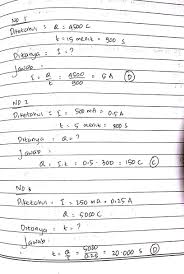 NO 1
Diketahui : Q = 4500 C
t = 15 menit = 900 S
Ditanya : I = ?
Jawab :
I = Q/t = 4500/900 = 5 A (D)
NO 2
Diketahui : I = 500 mA = 0.5 A
t = 5 menit = 300 S
Ditanya : Q = ?
Jawab :
Q = I.t = 0.5 . 300 = 150 C (C)
NO 3
Diketahui : I = 250 mA = 0.25 A
Q = 5000 C
Ditanya : t = ?
Jawab :
t = Q/I = 5000/0.25 = 20.000 S (D)